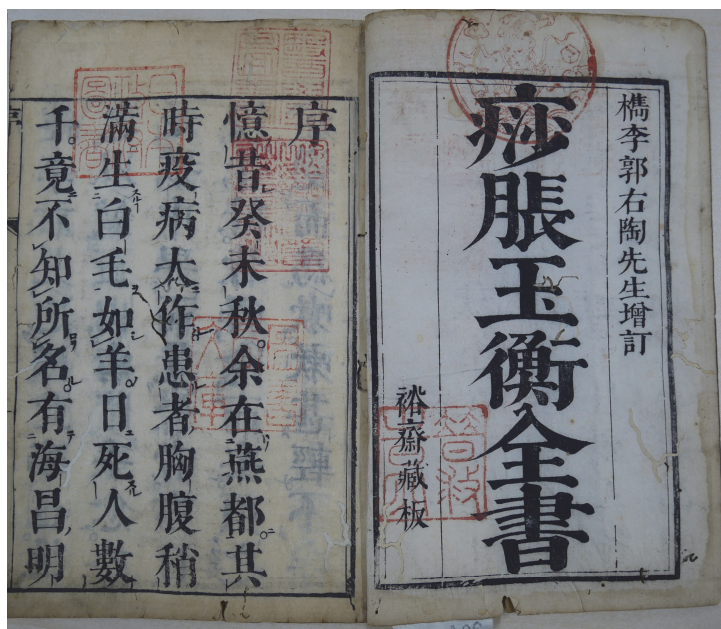 檇李郭右陶先生增訂
痧脹玉衡全書
裕齋藏板
序
憶昔癸未秋余在燕都其
時疫病大作患者胸腹稍
滿生白毛如羊日死人數
千竟不知所名有海昌明